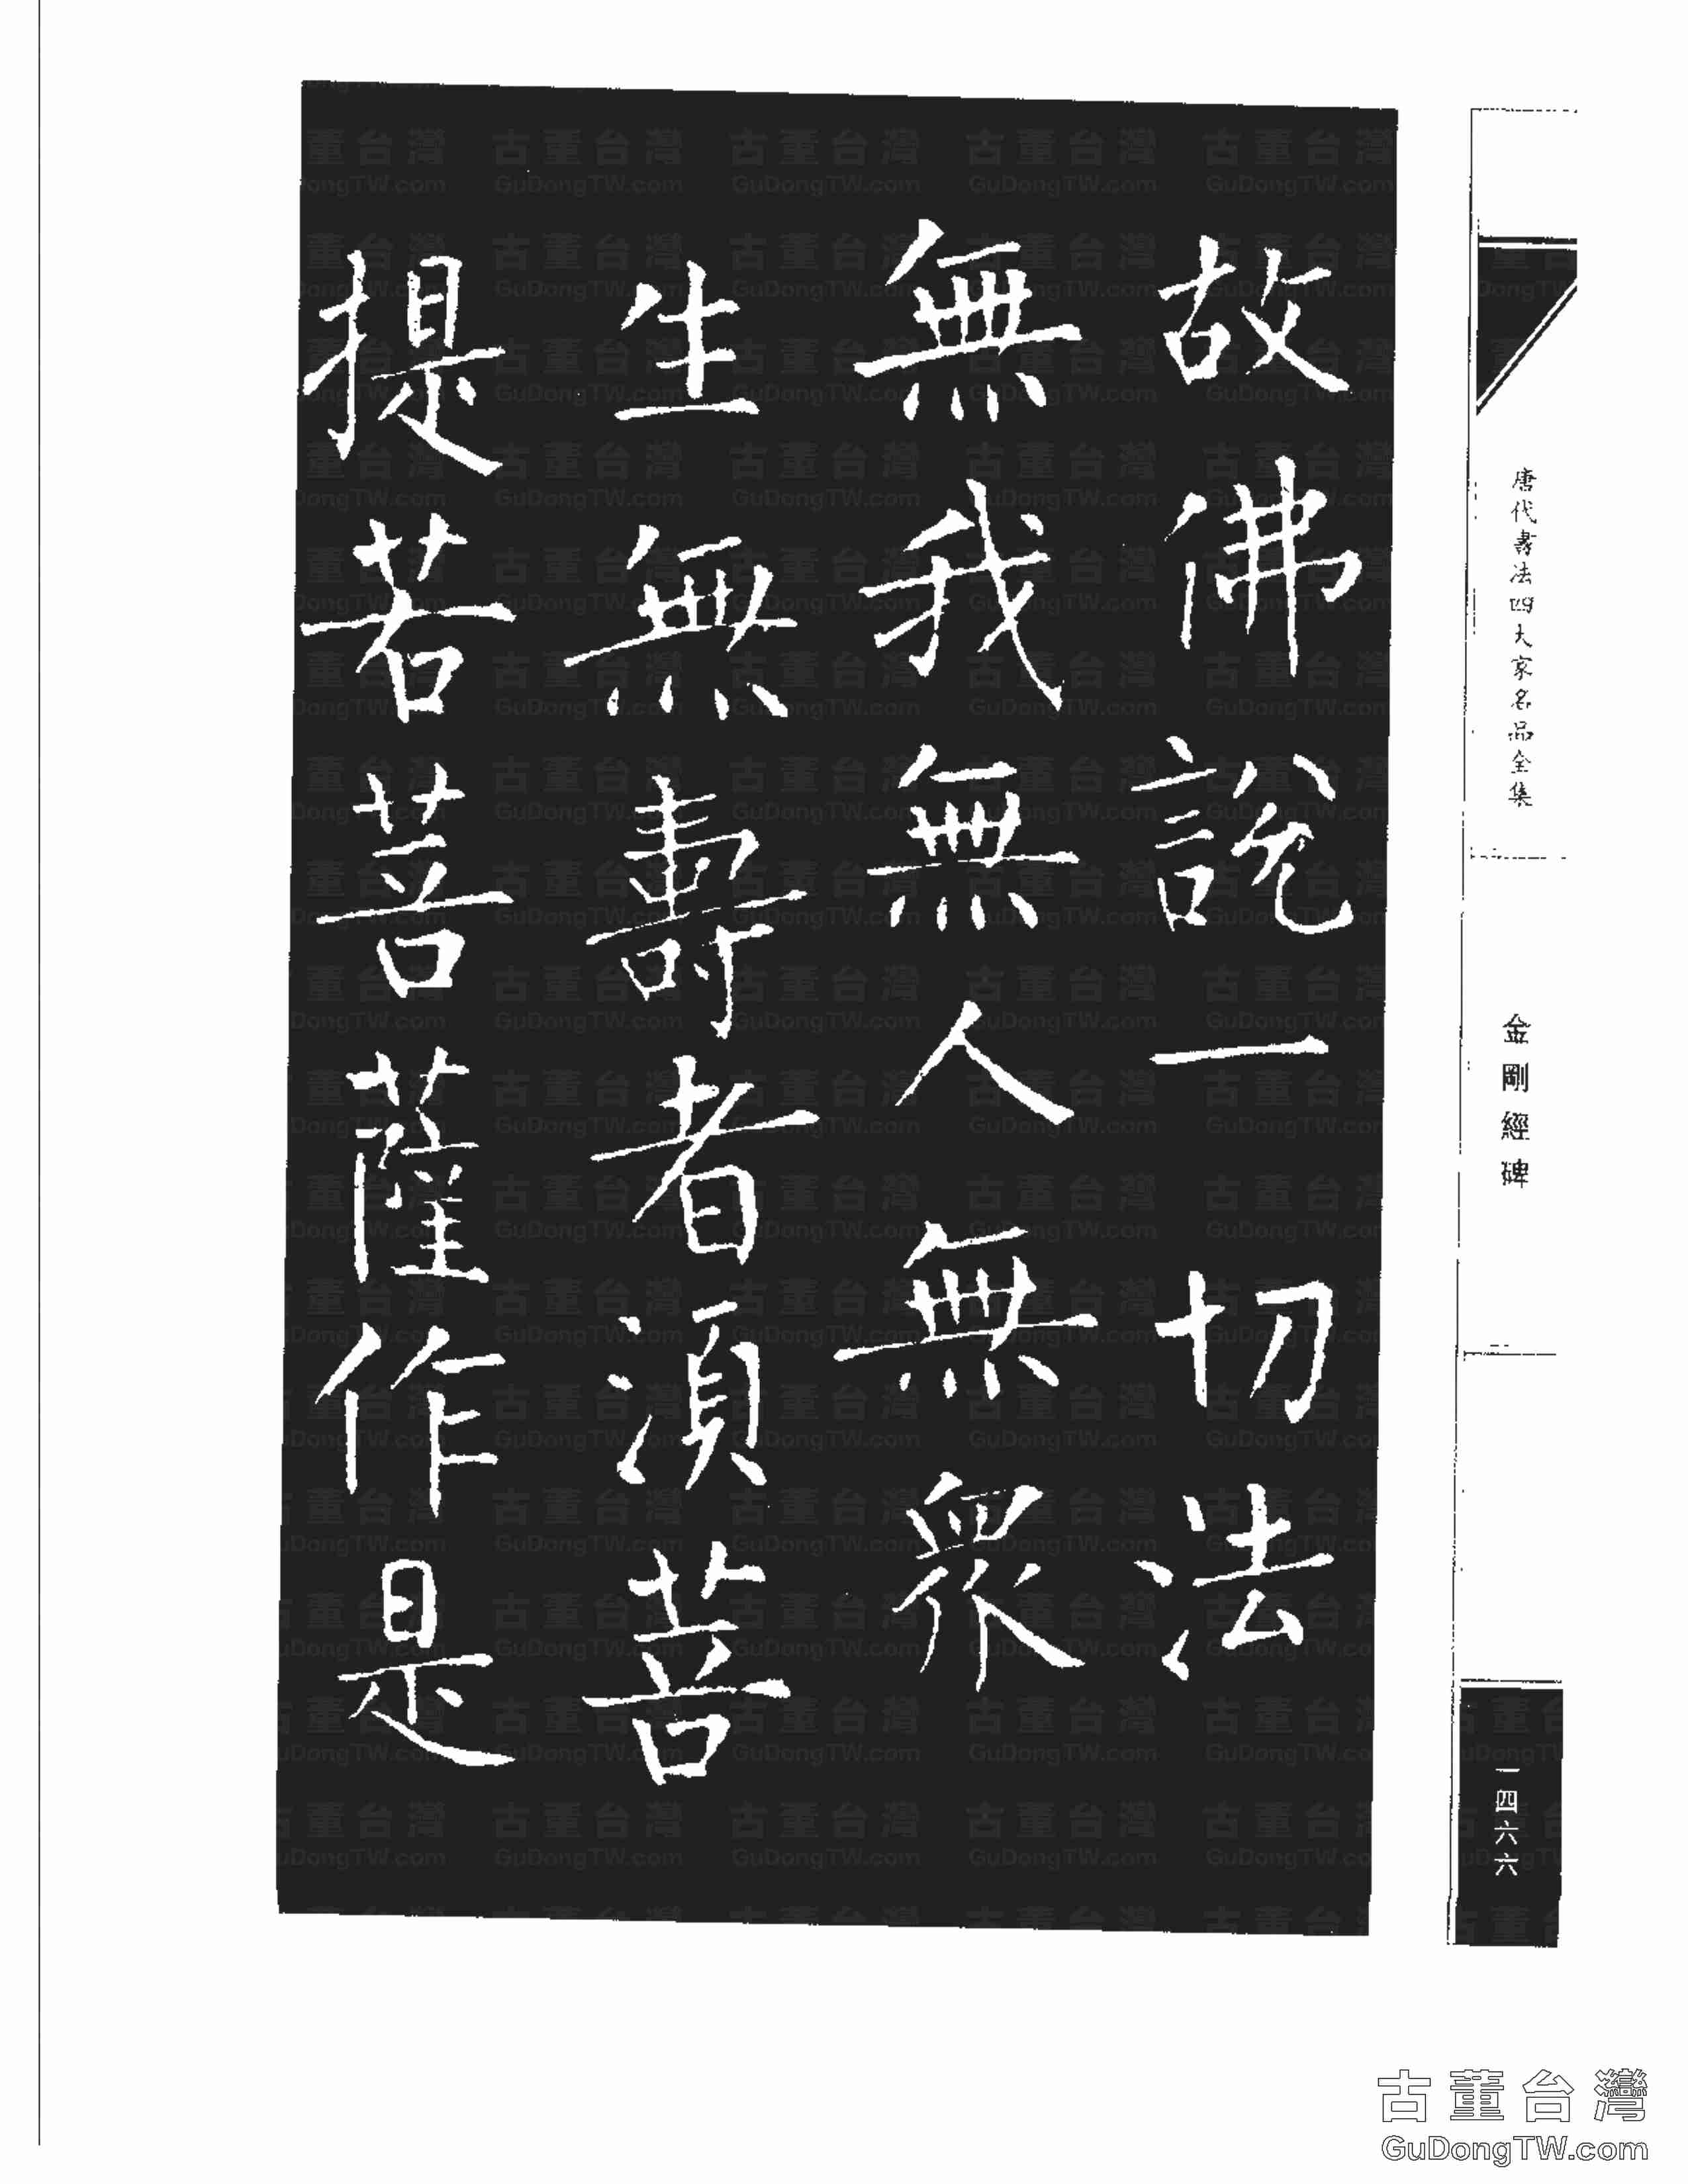 故佛說一切法
無我無人無眾
生無壽者須菩
提若菩薩作是
唐代書法四大家名品全集
金剛經碑
一四六六
古董台灣
GuDongTW.com